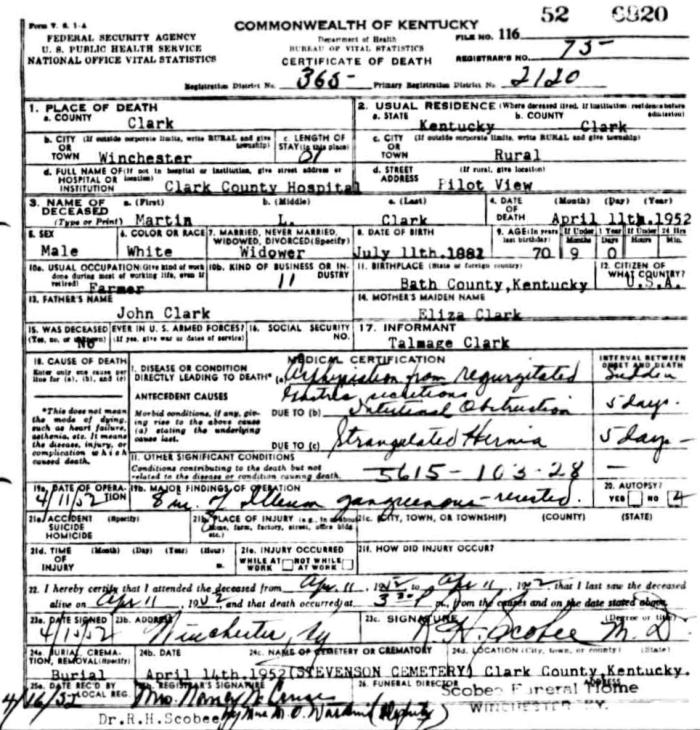 52 6820
Form V. S. 1-A
COMMONWEALTH OF KENTUCKY
FEDERAL SECURITY AGENCY
U. S. PUBLIC HEALTH SERVICE
NATIONAL OFFICE VITAL STATISTICS
Department of Health
BUREAU OF VITAL STATISTICS
CERTIFICATE OF DEATH
FILE NO. 116
REGISTRAR'S NO. 75-
Registration District No. 365- Primary Registration District No. 2120
1. PLACE OF DEATH
a. COUNTY Clark
2. USUAL RESIDENCE (Where deceased lived. If institution: residence before admission)
a. STATE Kentucky b. COUNTY Clark
b. CITY (If outside corporate limits, write RURAL and give township)
OR TOWN Winchester
c. LENGTH OF STAY (in this place)
c. CITY (If outside corporate limits, write RURAL and give township)
OR TOWN Rural
d. FULL NAME OF (If not in hospital or institution, give street address or location)
HOSPITAL OR INSTITUTION Clark County Hospital
d. STREET ADDRESS (If rural, give location)
Pilot View
3. NAME OF DECEASED (Type or Print)
a. (First) Martin b. (Middle) L. c. (Last) Clark
4. DATE OF DEATH (Month) (Day) (Year)
April 11th.1952
5. SEX Male
6. COLOR OR RACE White
7. MARRIED, NEVER MARRIED, WIDOWED, DIVORCED (Specify) Widower
8. DATE OF BIRTH July 11th.1881
9. AGE (In years last birthday) 70 If Under 1 Year Months 9 Days 0 If Under 24 Hrs Hours Min.
10a. USUAL OCCUPATION (Give kind of work done during most of working life, even if retired) Farmer
10b. KIND OF BUSINESS OR INDUSTRY 11
11. BIRTHPLACE (State or foreign country) Bath County,Kentucky
12. CITIZEN OF WHAT COUNTRY? U.S.A.
13. FATHER'S NAME John Clark
14. MOTHER'S MAIDEN NAME Eliza Clark
15. WAS DECEASED EVER IN U. S. ARMED FORCES?
(Yes, no, or unknown) (If yes, give war or dates of service) No
16. SOCIAL SECURITY NO.
17. INFORMANT Talmage Clark
18. CAUSE OF DEATH
Enter only one cause per line for (a), (b), and (c)
*This does not mean the mode of dying, such as heart failure, asthenia, etc. It means the disease, injury, or complication which caused death.
MEDICAL CERTIFICATION
INTERVAL BETWEEN ONSET AND DEATH
I. DISEASE OR CONDITION DIRECTLY LEADING TO DEATH* (a) Asphyxiation from regurgitated Sudden
ANTECEDENT CAUSES
Morbid conditions, if any, giving rise to the above cause (a) stating the underlying cause last.
DUE TO (b) Intestinal Obstruction 5 days.
DUE TO (c) Strangulated Hernia 5 days-
II. OTHER SIGNIFICANT CONDITIONS
Conditions contributing to the death but not related to the disease or condition causing death.
5615-103-28-
19a. DATE OF OPERATION 4/11/52
19b. MAJOR FINDINGS OF OPERATION 8 in. of Illeum gangreenous-resected.
20. AUTOPSY?
YES NO
21a. ACCIDENT SUICIDE HOMICIDE (Specify)
21b. PLACE OF INJURY (e.g., in or about home, farm, factory, street, office bldg., etc.)
21c. (CITY, TOWN, OR TOWNSHIP) (COUNTY) (STATE)
21d. TIME OF INJURY (Month) (Day) (Year) (Hour)
21e. INJURY OCCURRED
WHILE AT WORK NOT WHILE AT WORK
21f. HOW DID INJURY OCCUR?
22. I hereby certify that I attended the deceased from Apr 11, 1952 to Apr 11, 1952, that I last saw the deceased
alive on Apr 11, 1952 and that death occurred at m., from the causes and on the date stated above.
23a. DATE SIGNED 4/15/52
23b. ADDRESS Winchester, Ky
23c. SIGNATURE (Degree or title) R.H. Scobee M.D.
24a. BURIAL, CREMATION, REMOVAL (Specify) Burial
24b. DATE April 14th.1952
24c. NAME OF CEMETERY OR CREMATORY (STEVENSON CEMETERY)
24d. LOCATION (City, town, or county) (State) Clark County,Kentucky.
25a. DATE REC'D BY LOCAL REG. 4/16/52
REGISTRAR'S SIGNATURE Mrs. Nancy
26. FUNERAL DIRECTOR ADDRESS
Scobee Funeral Home
WINCHESTER, KY.
Dr.R.H.Scobee
(Deputy)